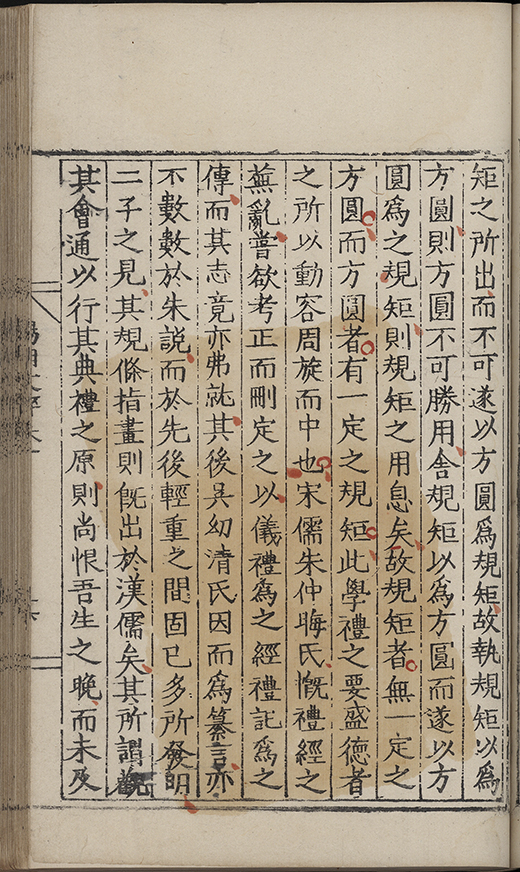 矩之所出而不可遂以方圓爲規矩故執規矩以爲
方圓則方圓不可勝用舍規矩以爲方圓而遂以方
圓爲之規矩則規矩之用息矣故規矩者無一定之
方圓而方圓者有一定之規矩此學禮之要盛德者
之所以動容周旋而中也宋儒朱仲晦氏慨禮經之
蕪亂嘗欲考正而刪定之以儀禮爲之經禮記爲之
傳而其志竟亦弗就其後吳幼清氏因而爲纂言亦
不數數於朱說而於先後輕重之間固已多所發明
二子之見其規條指畫則旣出於漢儒矣其所謂觀
其會通以行其典禮之原則尚恨吾生之晚而未及